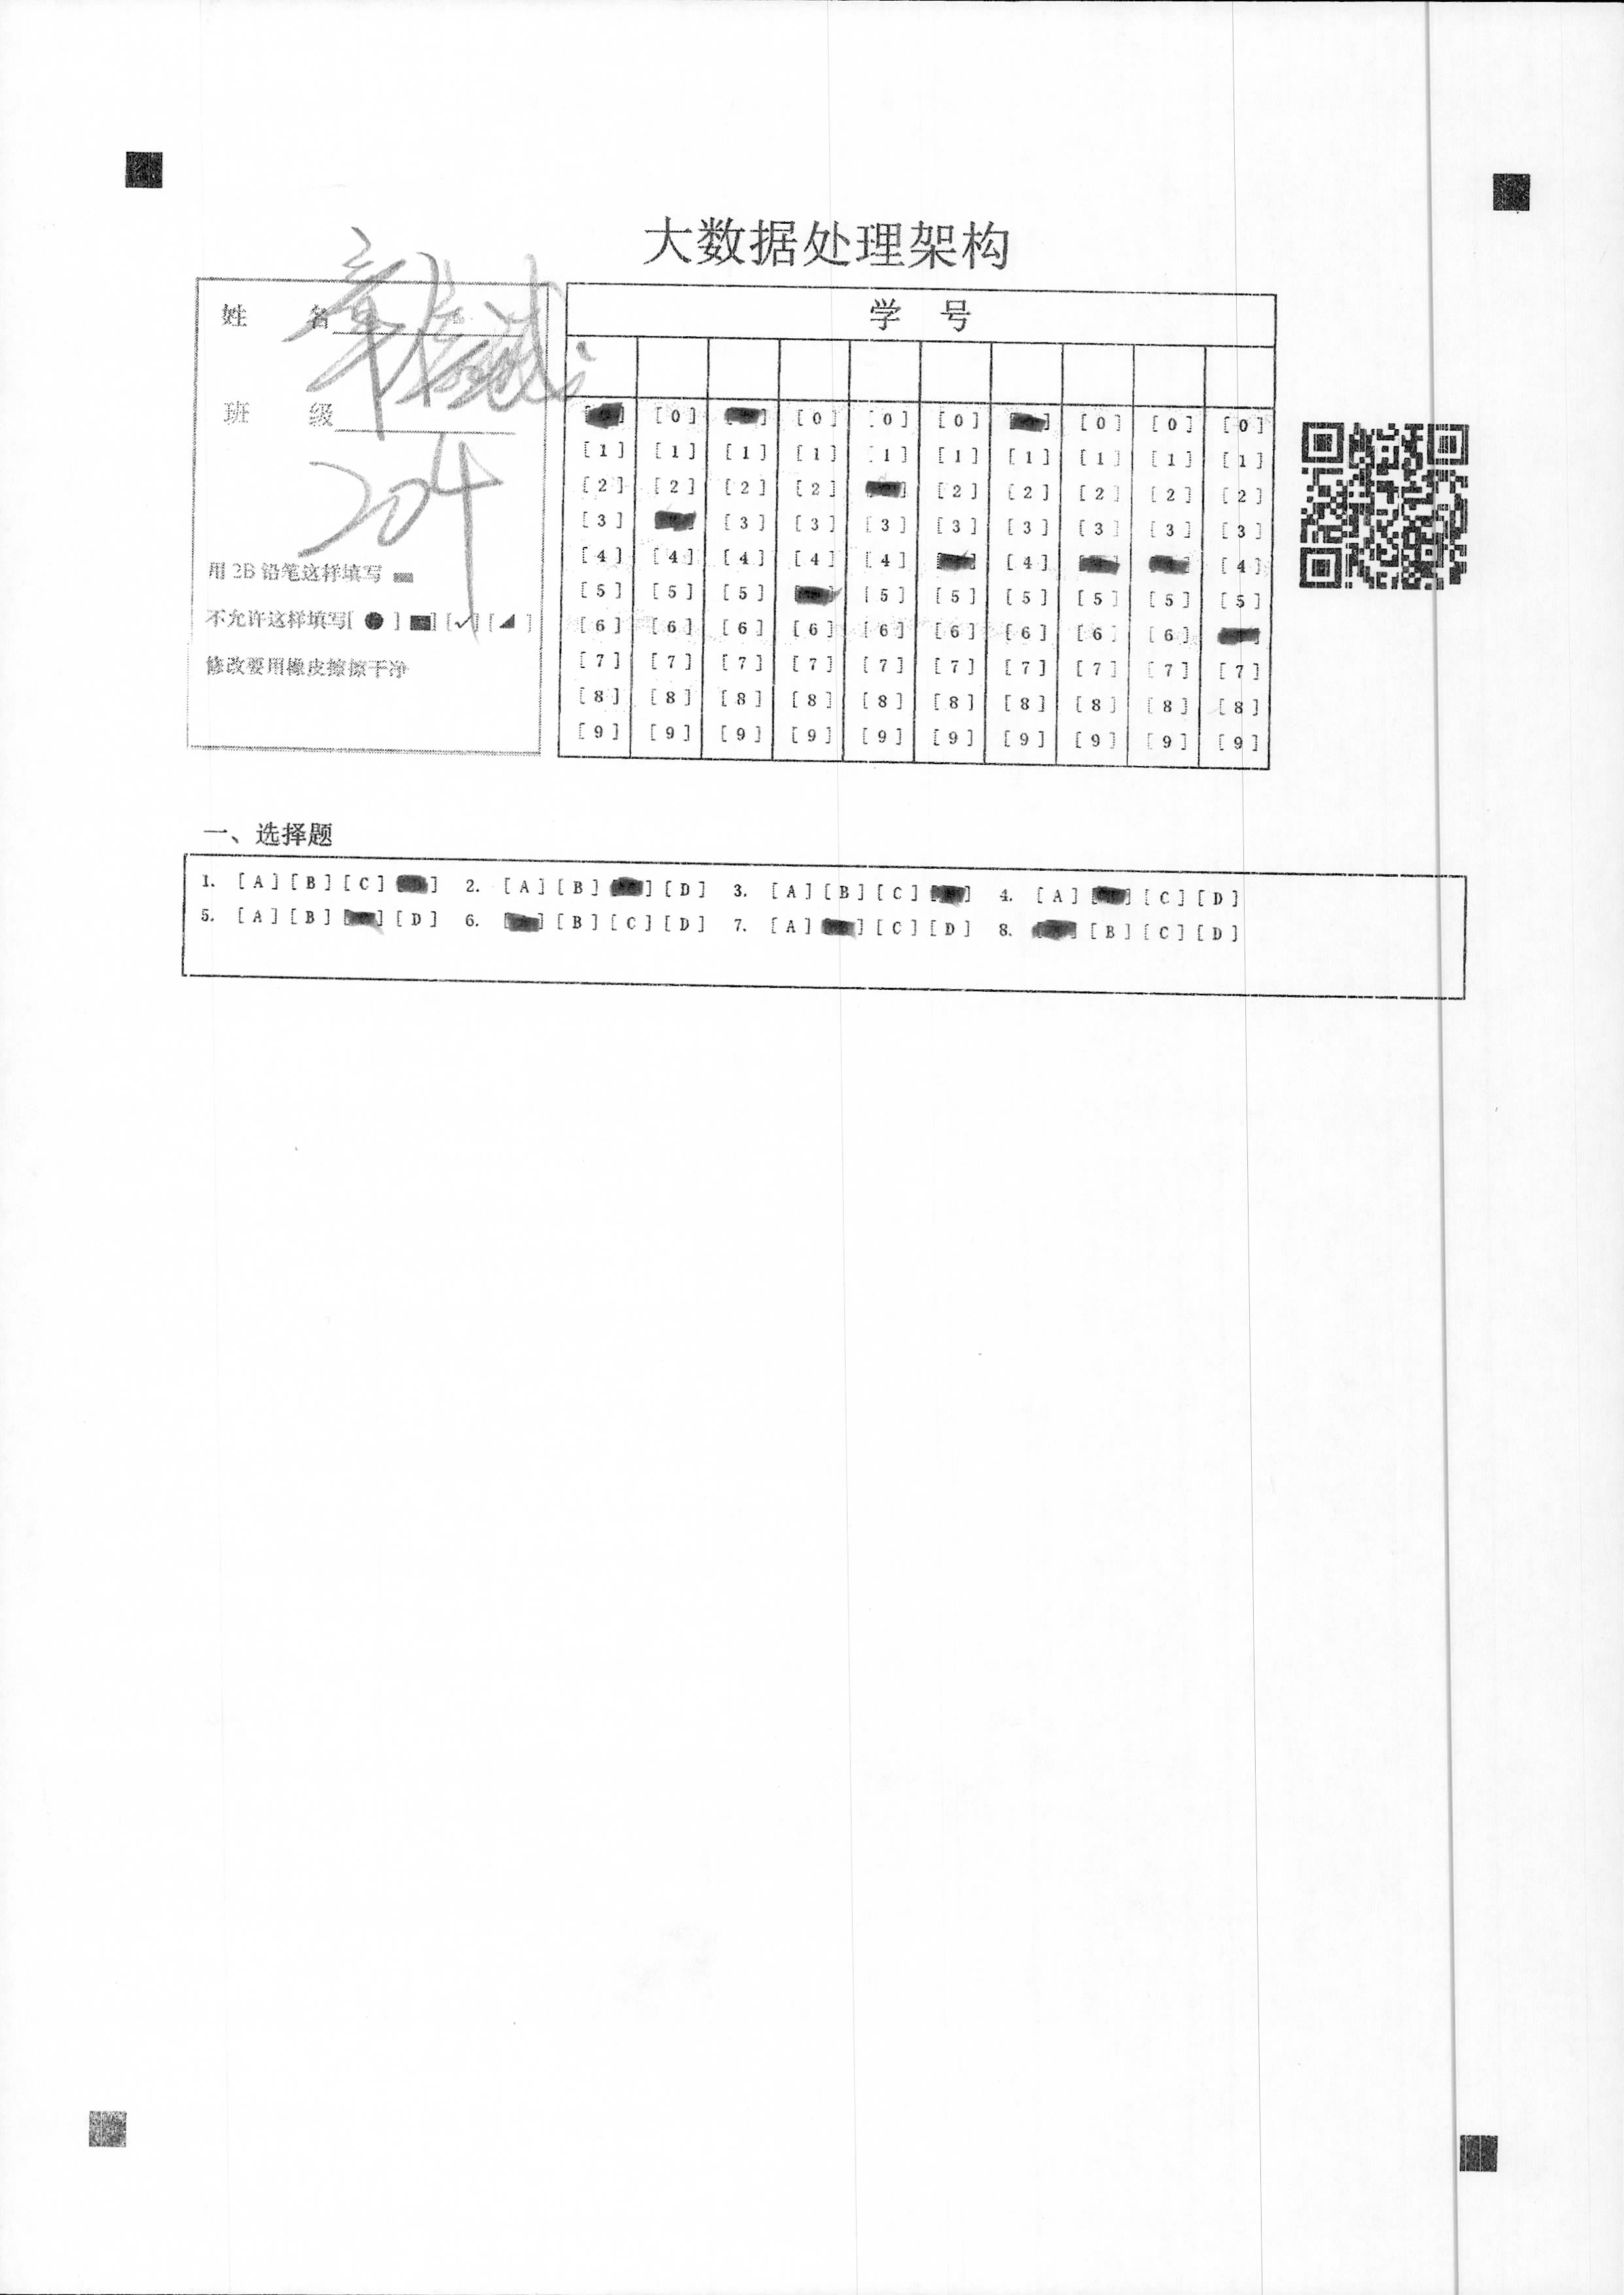 大数据处理架构
姓 名 章
班 级 204
用 2B 铅笔这样填写
不允许这样填写[ ● ] [■] [✓] [◢ ]
修改要用橡皮擦擦干净
学 号
[0] [0] [0] [0] [0] [0] [0]
[1] [1] [1] [1] [1] [1] [1] [1] [1] [1]
[2] [2] [2] [2] [2] [2] [2] [2] [2]
[3] [3] [3] [3] [3] [3] [3] [3] [3]
[4] [4] [4] [4] [4] [4] [4]
[5] [5] [5] [5] [5] [5] [5] [5] [5]
[6] [6] [6] [6] [6] [6] [6] [6] [6]
[7] [7] [7] [7] [7] [7] [7] [7] [7] [7]
[8] [8] [8] [8] [8] [8] [8] [8] [8] [8]
[9] [9] [9] [9] [9] [9] [9] [9] [9] [9]
一、选择题
1. [A] [B] [C] 2. [A] [B] [D] 3. [A] [B] [C] 4. [A] [C] [D]
5. [A] [B] [D] 6. [B] [C] [D] 7. [A] [C] [D] 8. [B] [C] [D]